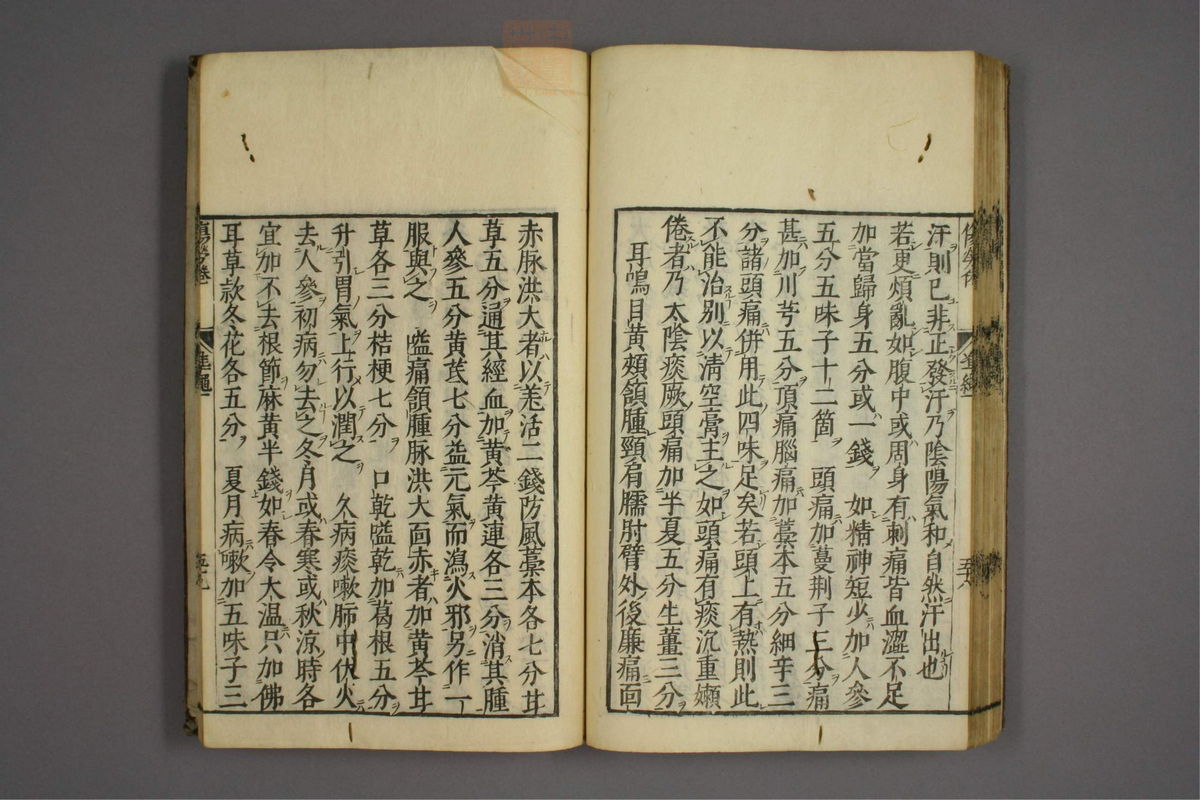 汗則已非正發汗乃陰陽氣和自然汗出也
若更煩亂如腹中或周身有刺痛皆血澀不足
加當歸身五分或一錢 如精神短少加人參
五分五味子十二箇 頭痛加蔓荆子三分痛
甚加川芎五分頂痛腦痛加藁本五分細辛三
分諸頭痛併用此四味足矣若頭上有熱則此
不能治别以清空膏主之如頭痛有痰沉重嬾
倦者乃太陰痰厥頭痛加半夏五分生薑三分
耳鳴目黄頰頷腫頸肩臑肘臂外後廉痛面
赤脉洪大者以羗活二錢防風藁本各七分甘
草五分通其經血加黄芩黄連各三分消其腫
人參五分黄芪七分益元氣而瀉火邪另作一
服與之 嗌痛頷腫脉洪大面赤者加黄芩甘
草各三分桔梗七分 口乾嗌乾加葛根五分
升引胃氣上行以潤之 久病痰嗽肺中伏火
去人參初病勿去之冬月或春寒或秋涼時各
宜加不去根節麻黄半錢如春令大温只加佛
耳草款冬花各五分 夏月病嗽加五味子三